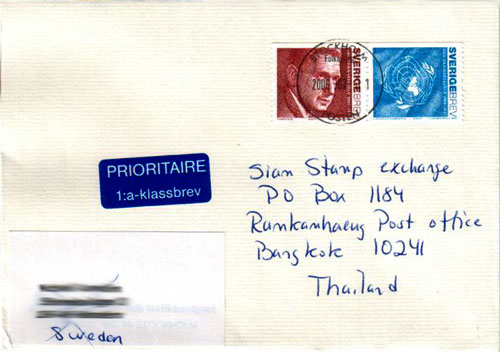 STOCKHOLM
SVERIGE BREV
SVERIGE BREV
PRIORITAIRE
1:a-klassbrev
Siam Stamp exchange
PO Box 1184
Ramkamhaeng Post office
Bangkok 10241
Thailand
Sweden